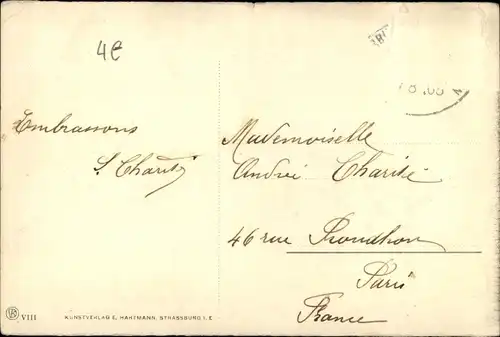 4€
Embrassons
S. Charité
Mademoiselle
André Charité
46 rue Proudhon
Paris
France
VIII KUNSTVERLAG E. HARTMANN, STRASSBURG I. E